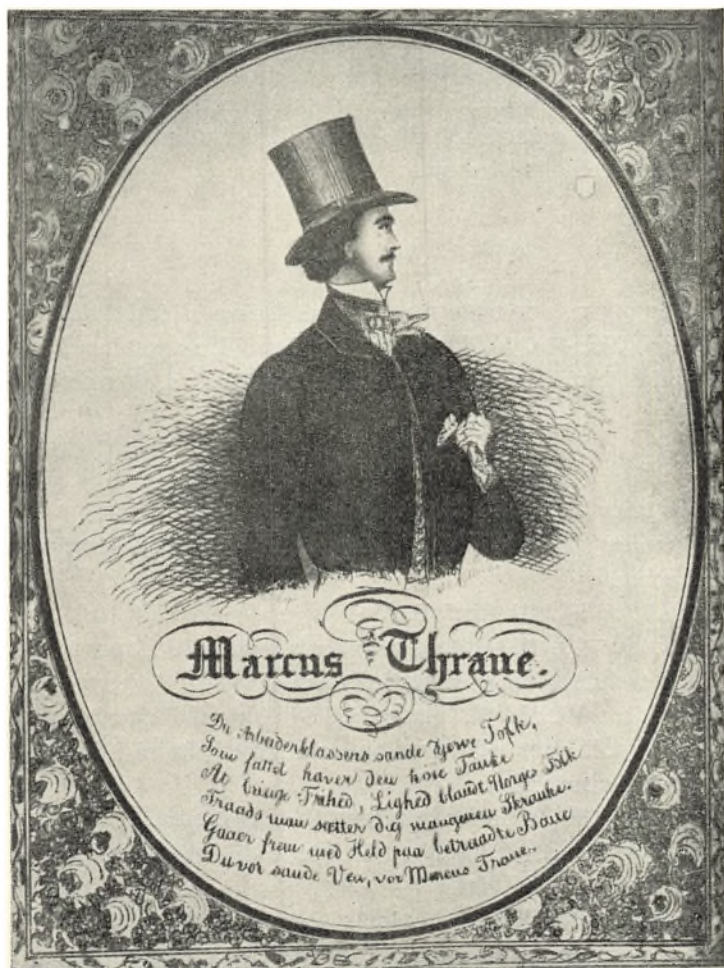 Marcus Thrane.
Du Arbeiderklassens sande djerve Tolk,
Som fattet haver den høie Tanke
At bringe Frihed, Lighed blandt Norges Folk
Traads man sætter dig mangen en Skranke.
Gaaer frem med Held paa betraadte Bane
Du vor sande Ven, vor Marcus Trane.